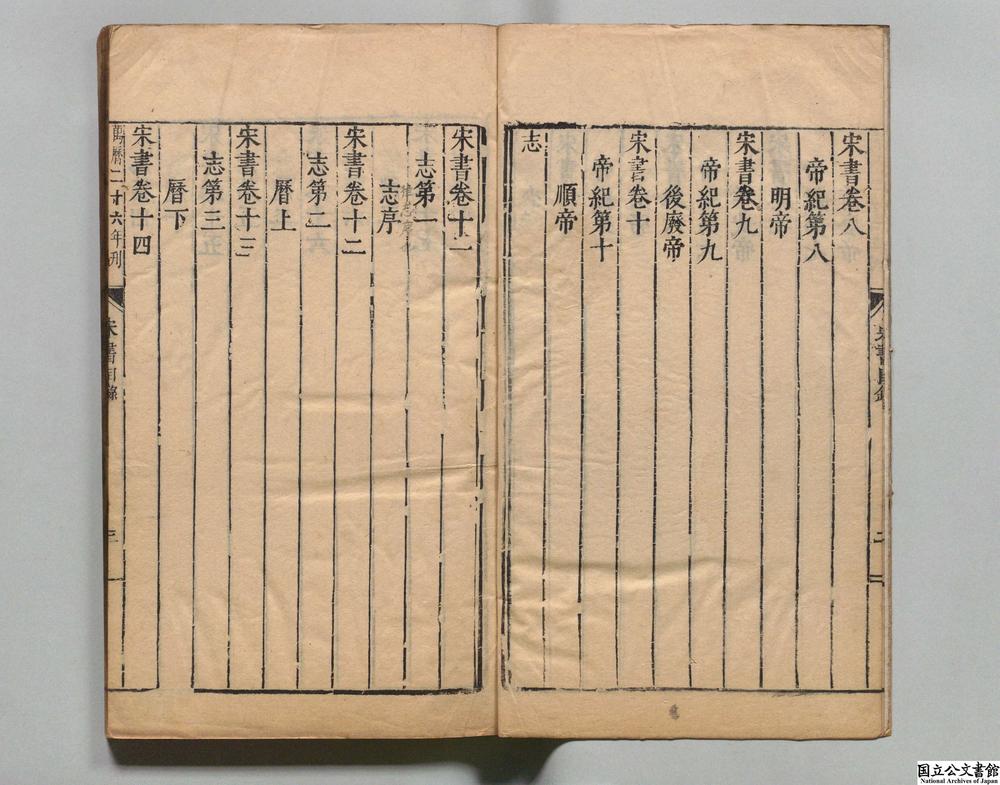 宋書卷八
帝紀第八
明帝
宋書卷九
帝紀第九
後廢帝
宋書卷十
帝紀第十
順帝
志
宋書目錄
二
宋書卷十一
志第一
志序
宋書卷十二
志第二
曆上
宋書卷十三
志第三
曆下
宋書卷十四
萬曆二十六年刊
宋書目錄
三
国立公文書館
National Archives of Japan